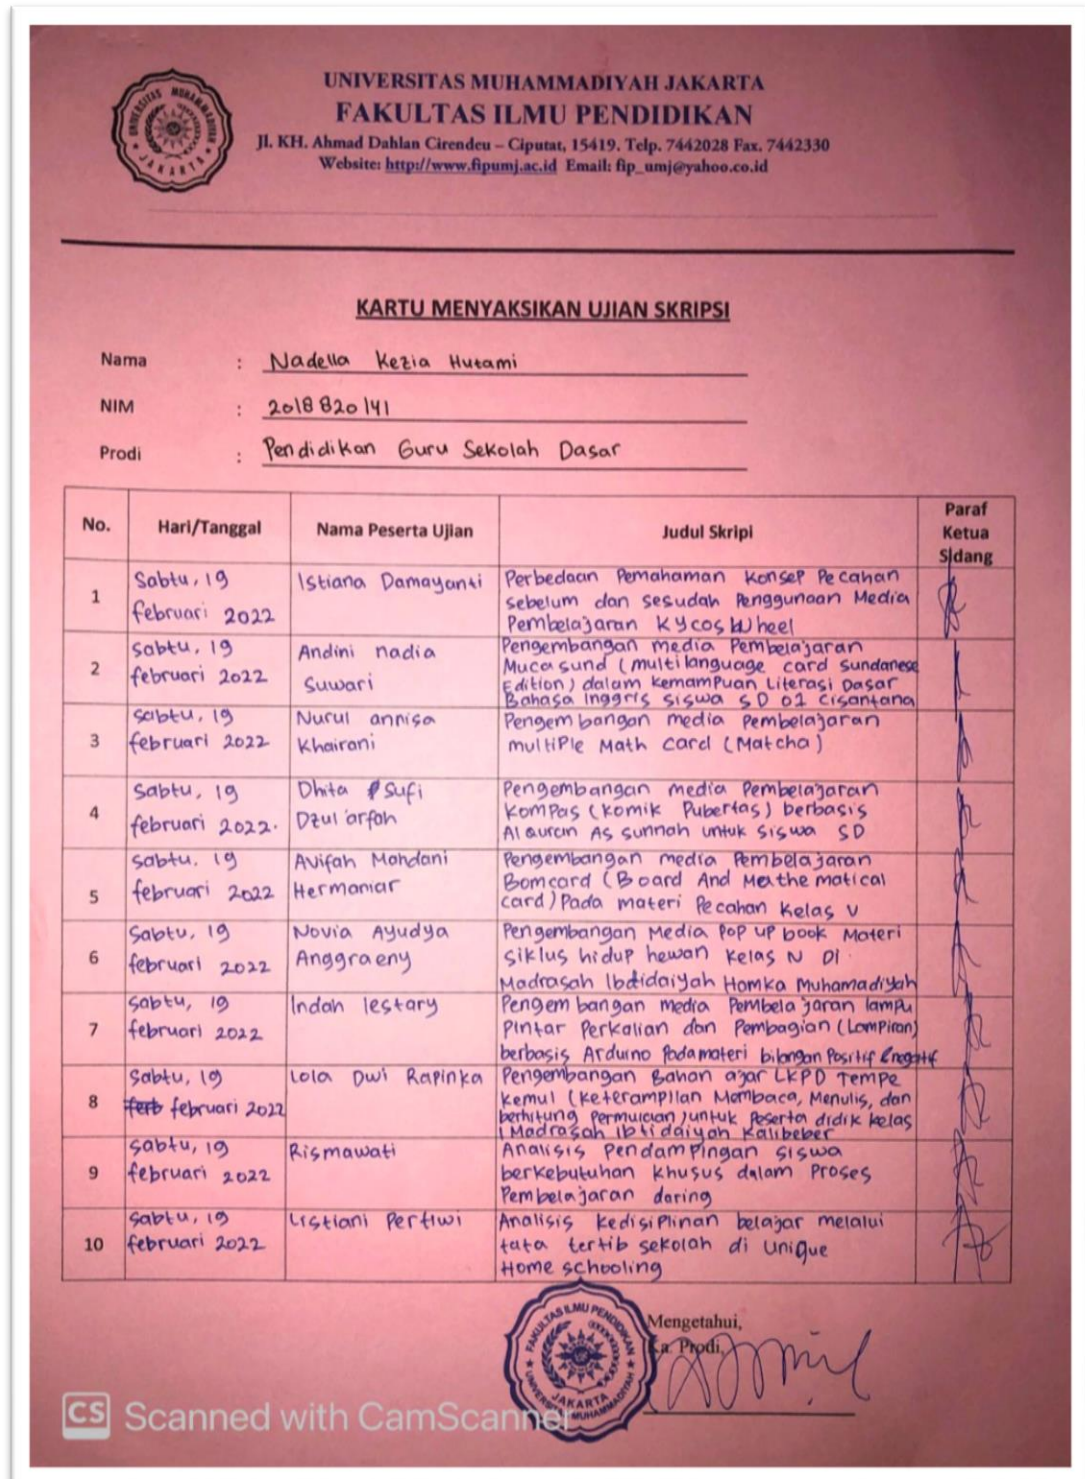 UNIVERSITAS MUHAMMADIYAH JAKARTA
FAKULTAS ILMU PENDIDIKAN
Jl. KH. Ahmad Dahlan Cirendeu – Ciputat, 15419. Telp. 7442028 Fax. 7442330
Website: http://www.fipumj.ac.id Email: fip_umj@yahoo.co.id
UNIVERSITAS MUHAMMADIYAH
JAKARTA
KARTU MENYAKSIKAN UJIAN SKRIPSI
Nama : Nadella Kezia Hutami
NIM : 2018820141
Prodi : Pendidikan Guru Sekolah Dasar
No. Hari/Tanggal Nama Peserta Ujian Judul Skripi Paraf Ketua Sidang
1 Sabtu, 19 februari 2022 Istiana Damayanti Perbedaan Pemahaman Konsep Pecahan
sebelum dan sesudah Penggunaan Media
Pembelajaran Kycos Wheel
2 Sabtu, 19 februari 2022 Andini nadia Suwari Pengembangan media Pembelajaran
Mucasund (multilanguage card sundanese
Edition) dalam kemampuan Literasi Dasar
Bahasa Inggris siswa SD 02 Cisantana
3 Sabtu, 19 februari 2022 Nurul annisa Khairani Pengembangan media Pembelajaran
multiple Math card (Matcha)
4 Sabtu, 19 februari 2022. Dhita Sufi Dzul'arfah Pengembangan media Pembelajaran
Kompas (Komik Pubertas) berbasis
Al quran As sunnah untuk siswa SD
5 Sabtu, 19 februari 2022 Avifah Mahdani Hermaniar Pengembangan media Pembelajaran
Bomcard (Board And Mathematical
card) Pada materi Pecahan Kelas V
6 Sabtu, 19 februari 2022 Novia Ayudya Anggraeny Pengembangan Media Pop up book Materi
siklus hidup hewan Kelas IV Di
Madrasah Ibtidaiyah Hamka Muhamadiyah
7 Sabtu, 19 februari 2022 Indah lestary Pengembangan media Pembelajaran lampu
Pintar Perkalian dan Pembagian (Lampiran)
berbasis Arduino Pada materi bilangan Positif & negatif
8 Sabtu, 19 februari 2022 Lola Dwi Rapinka Pengembangan Bahan ajar LKPD Tempe
Kemul (Keterampilan Membaca, Menulis, dan
berhitung Permulaan) untuk Peserta didik kelas
1 Madrasah Ibtidaiyah Kalibeber
9 Sabtu, 19 februari 2022 Rismawati Analisis Pendampingan siswa
berkebutuhan khusus dalam Proses
Pembelajaran daring
10 Sabtu, 19 februari 2022 Listiani Pertiwi Analisis kedisiplinan belajar melalui
tata tertib sekolah di Unique
Home schooling
Mengetahui,
Ka. Prodi,
FAKULTAS ILMU PENDIDIKAN
UNIVERSITAS MUHAMMADIYAH
JAKARTA
CS Scanned with CamScanner